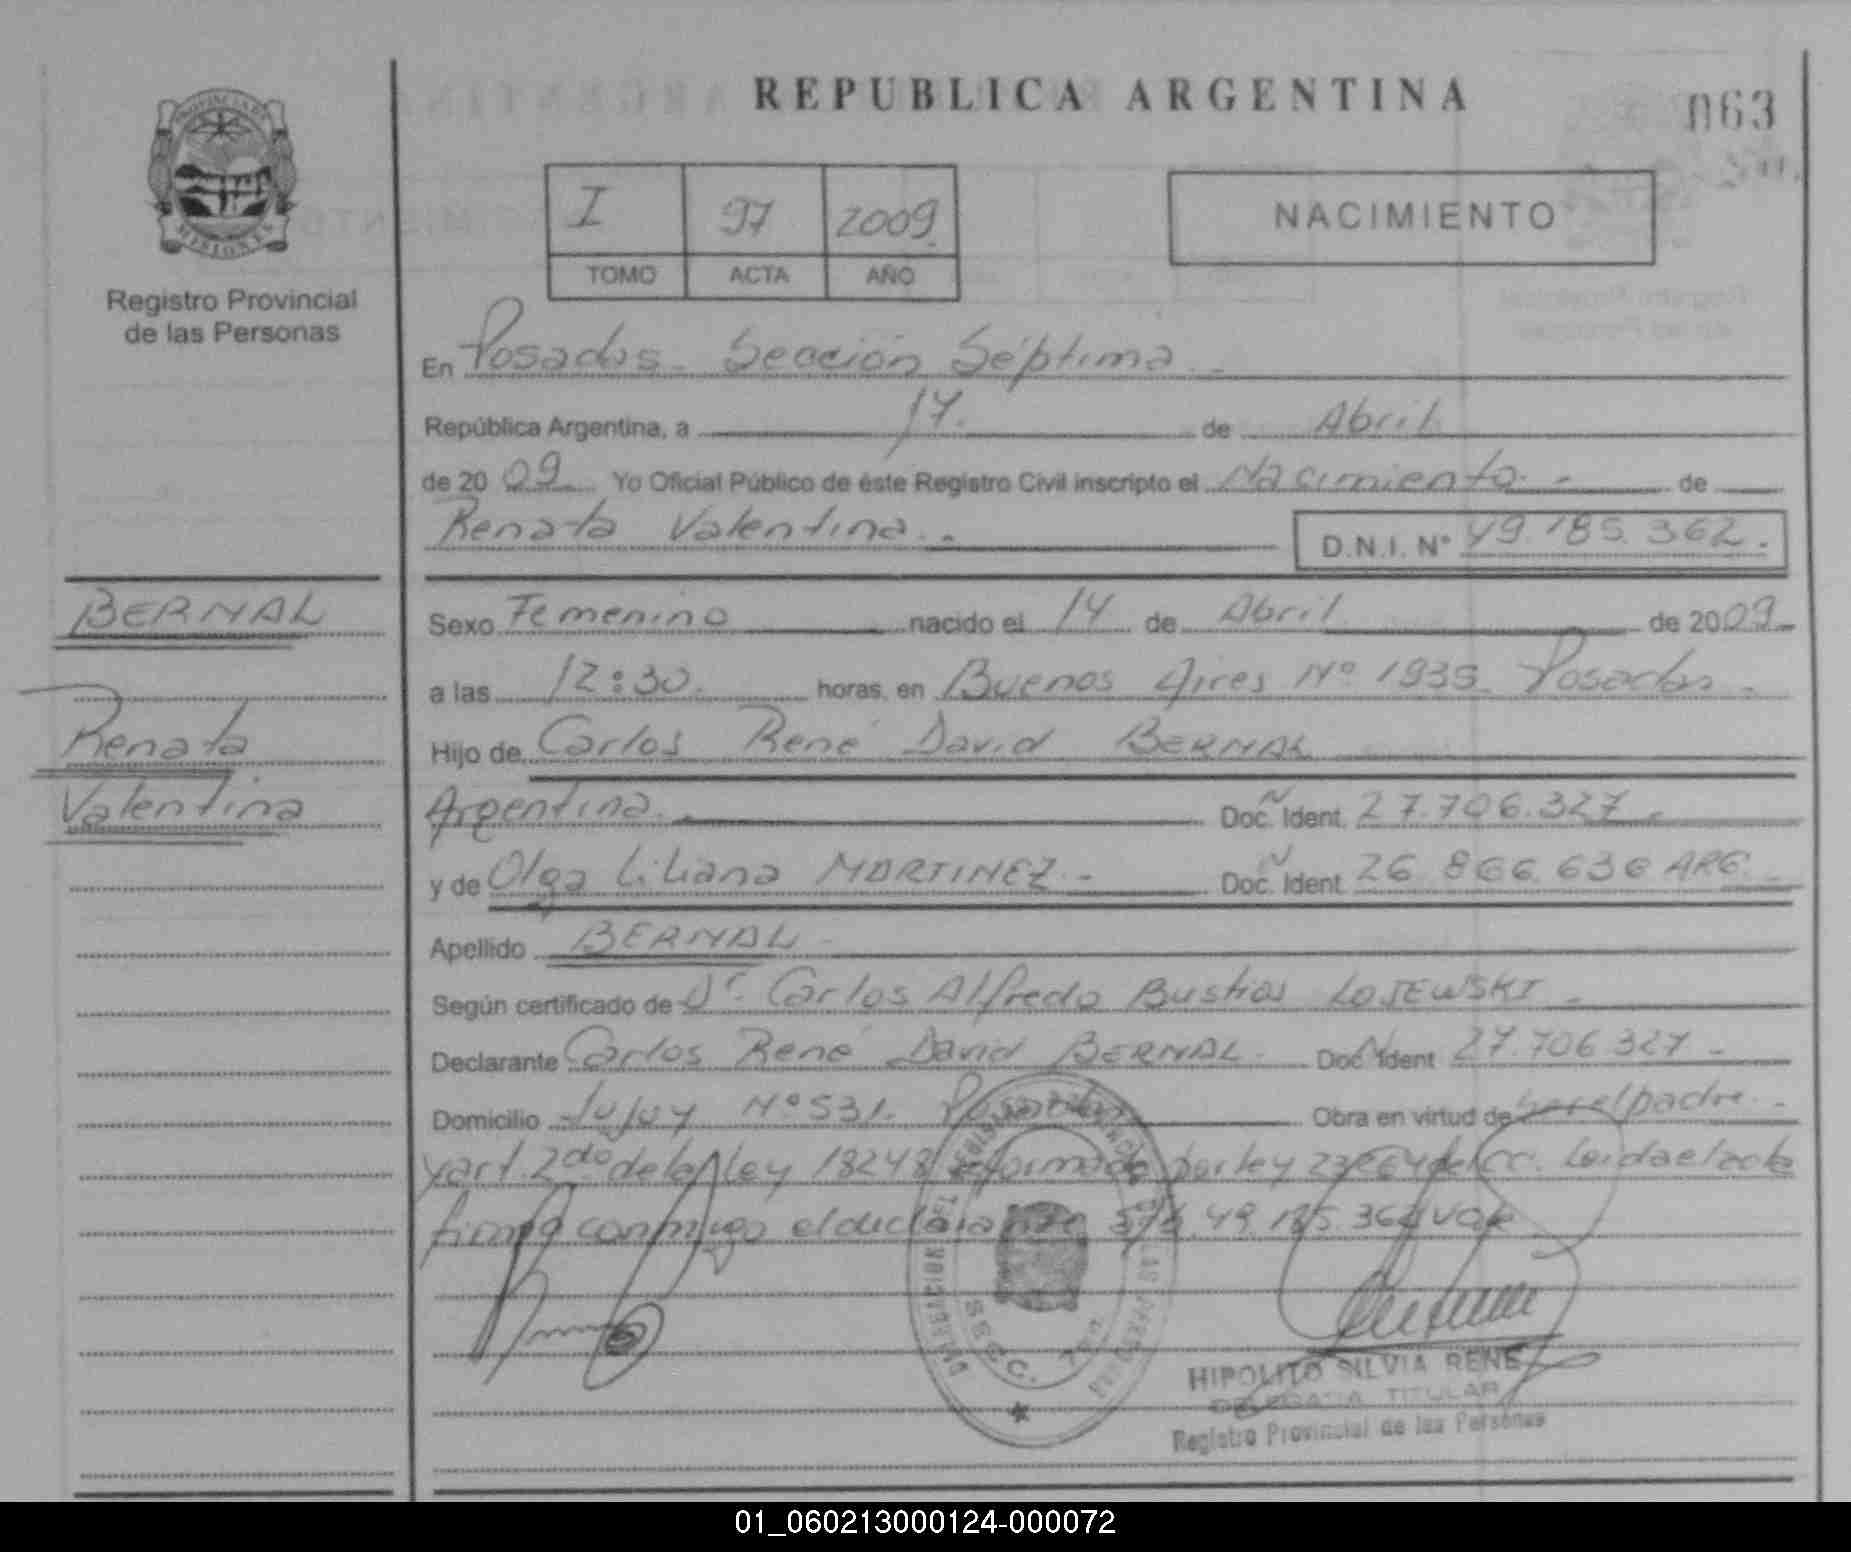 REPUBLICA ARGENTINA
063
PROVINCIA DE
MISIONES
Registro Provincial
de las Personas
I 97 2009
TOMO ACTA AÑO
NACIMIENTO
En Posadas - Sección Séptima -
República Argentina, a 14. de Abril
de 20 09 Yo Oficial Público de éste Registro Civil inscripto el Nacimiento - de
Renata Valentina. - D.N.I. Nº 49.185.362.
BERNAL
Renata
Valentina
Sexo Femenino nacido el 14 de Abril de 2009
a las 12:30. horas, en Buenos Aires Nº 1935 Posadas -
Hijo de Carlos René David BERNAL
Argentina. Doc. Ident. 27.706.327 -
y de Olga Liliana MARTINEZ - Doc. Ident 26.866.636 ARG. -
Apellido BERNAL -
Según certificado de Dr. Carlos Alfredo Bustios LOJEWSKI -
Declarante Carlos René David BERNAL. Doc Ident 27.706.327 -
Domicilio Jujuy Nº 531. Posadas Obra en virtud de ser el padre. -
y art. 2do de la Ley 18248 reformada por ley 23264 del CC. Leida el acta
firma conmigo el declarante 49.185.362 vale
DELEGACION
SSCC. 7
HIPOLITO SILVIA RENE
DELEGADA TITULAR
Registro Provincial de las Personas
01_060213000124-000072